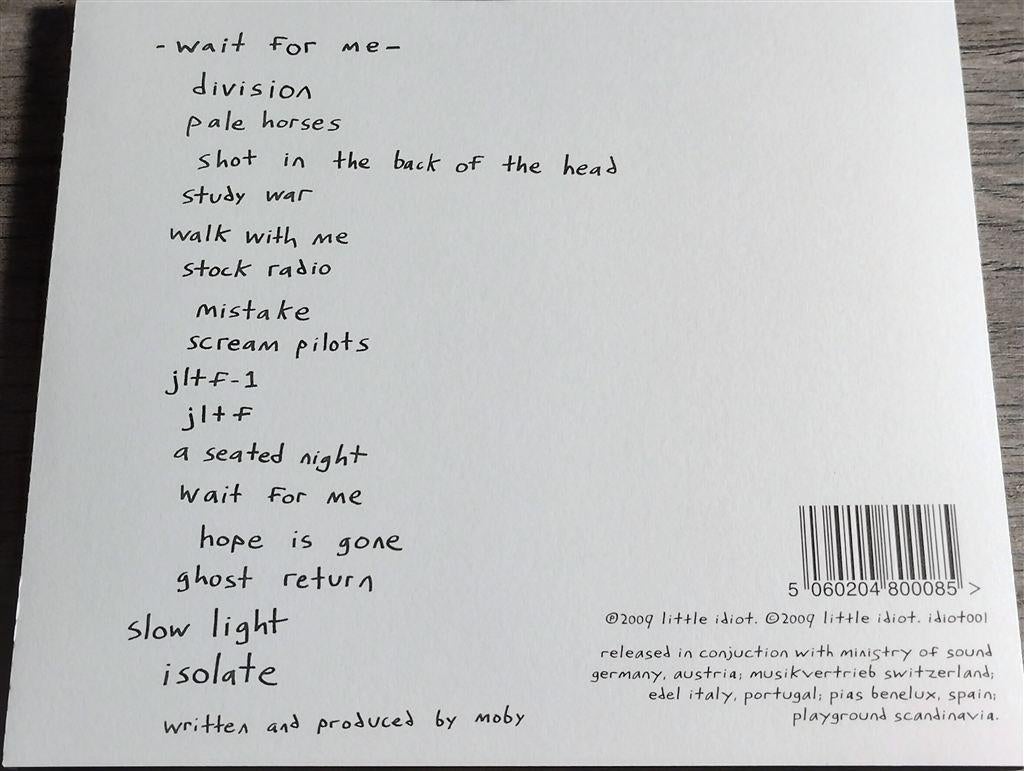 - wait for me -
division
pale horses
shot in the back of the head
study war
walk with me
stock radio
mistake
scream pilots
jltf-1
jltf
a seated night
wait for me
hope is gone
ghost return
slow light
isolate
written and produced by moby
5 060204 800085 >
℗2009 little idiot. ©2009 little idiot. idiot001
released in conjuction with ministry of sound
germany, austria; musikvertrieb switzerland;
edel italy, portugal; pias benelux, spain;
playground scandinavia.